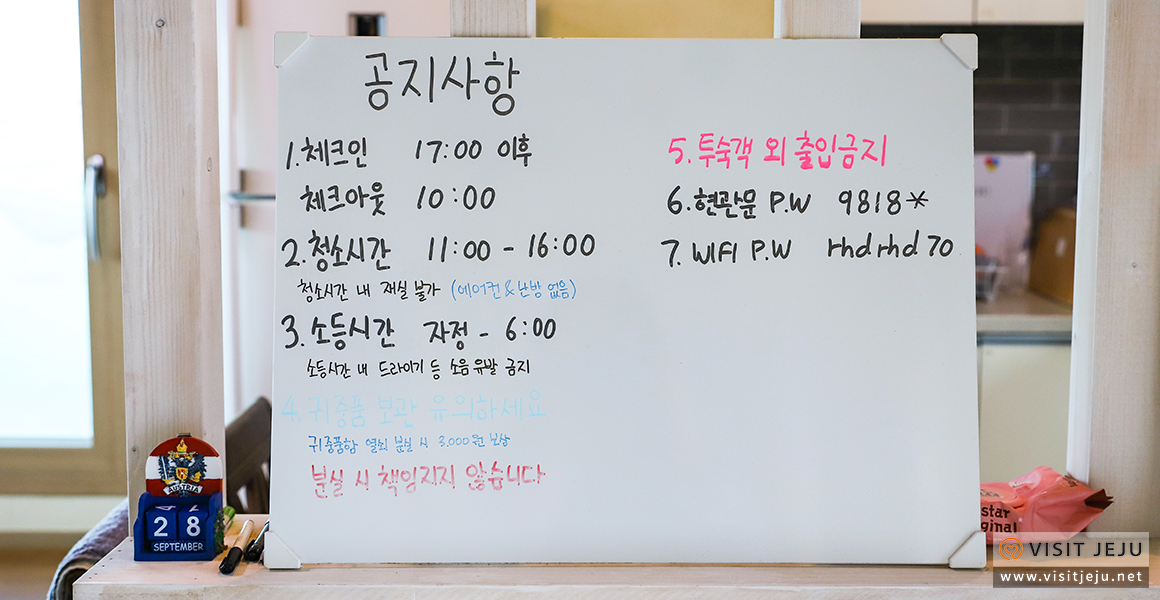 공지사항
1. 체크인 17:00 이후
체크아웃 10:00
2. 청소시간 11:00 - 16:00
청소시간 내 재실 불가 (에어컨&난방 없음)
3. 소등시간 자정 - 6:00
소등시간 내 드라이기 등 소음 유발 금지
4. 귀중품 보관 유의하세요
귀중품함 열쇠 분실 시 3,000원 보상
분실 시 책임지지 않습니다
5. 투숙객 외 출입금지
6. 현관문 P.W 9818*
7. WIFI P.W rhdrhd70
AUSTRIA
28
SEPTEMBER
star
iginal
VISIT JEJU
www.visitjeju.net